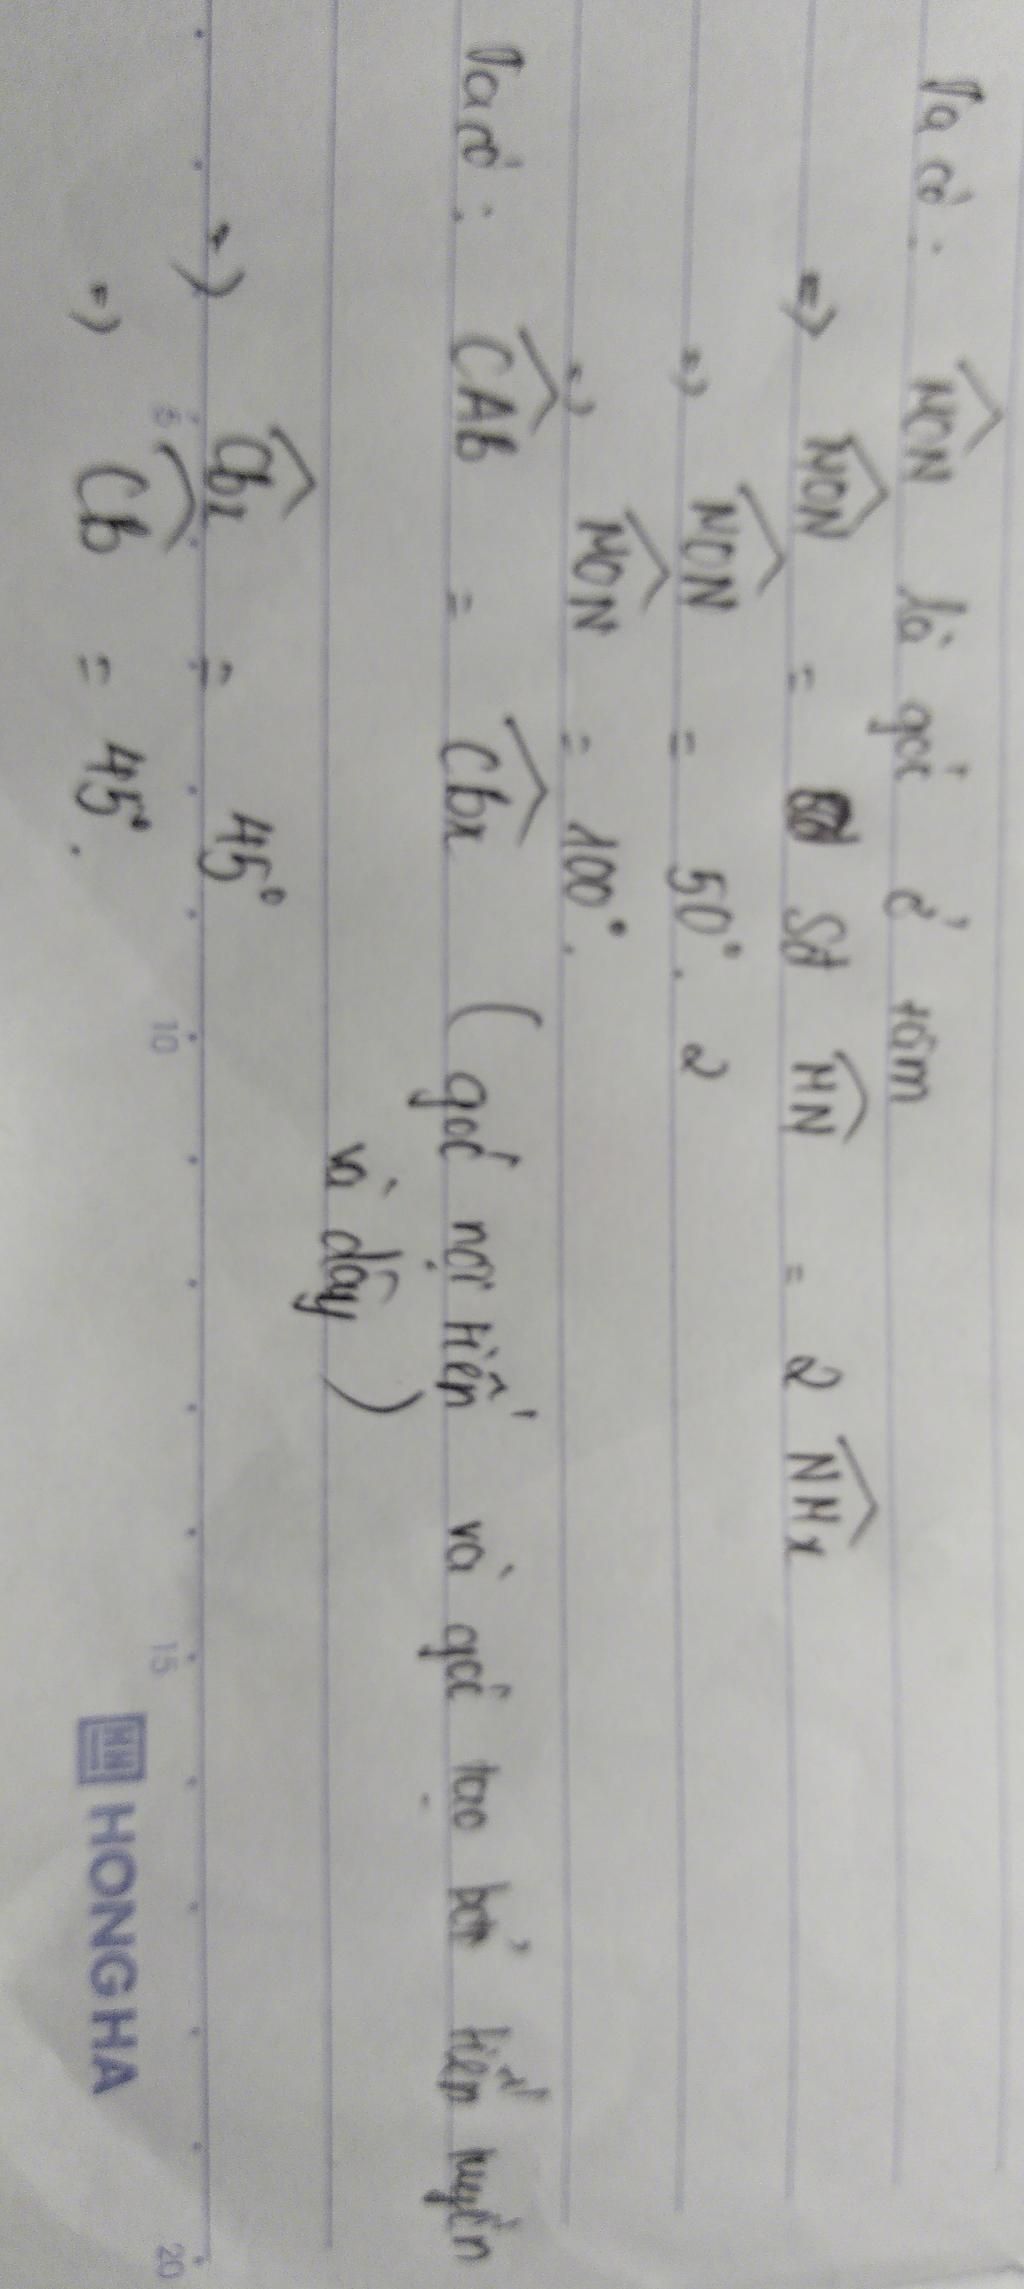 Ta có : MON là góc ở tâm
=> MON = Sđ MN = 2 NMx
=> MON = 50°. 2
=> MON = 100°.
Ta có : CAB = CBx (góc nội tiếp và góc tạo bởi tiếp tuyến
và dây)
=> CBx = 45°
=> CB = 45°.
5 10 15 20
HH HONG HA